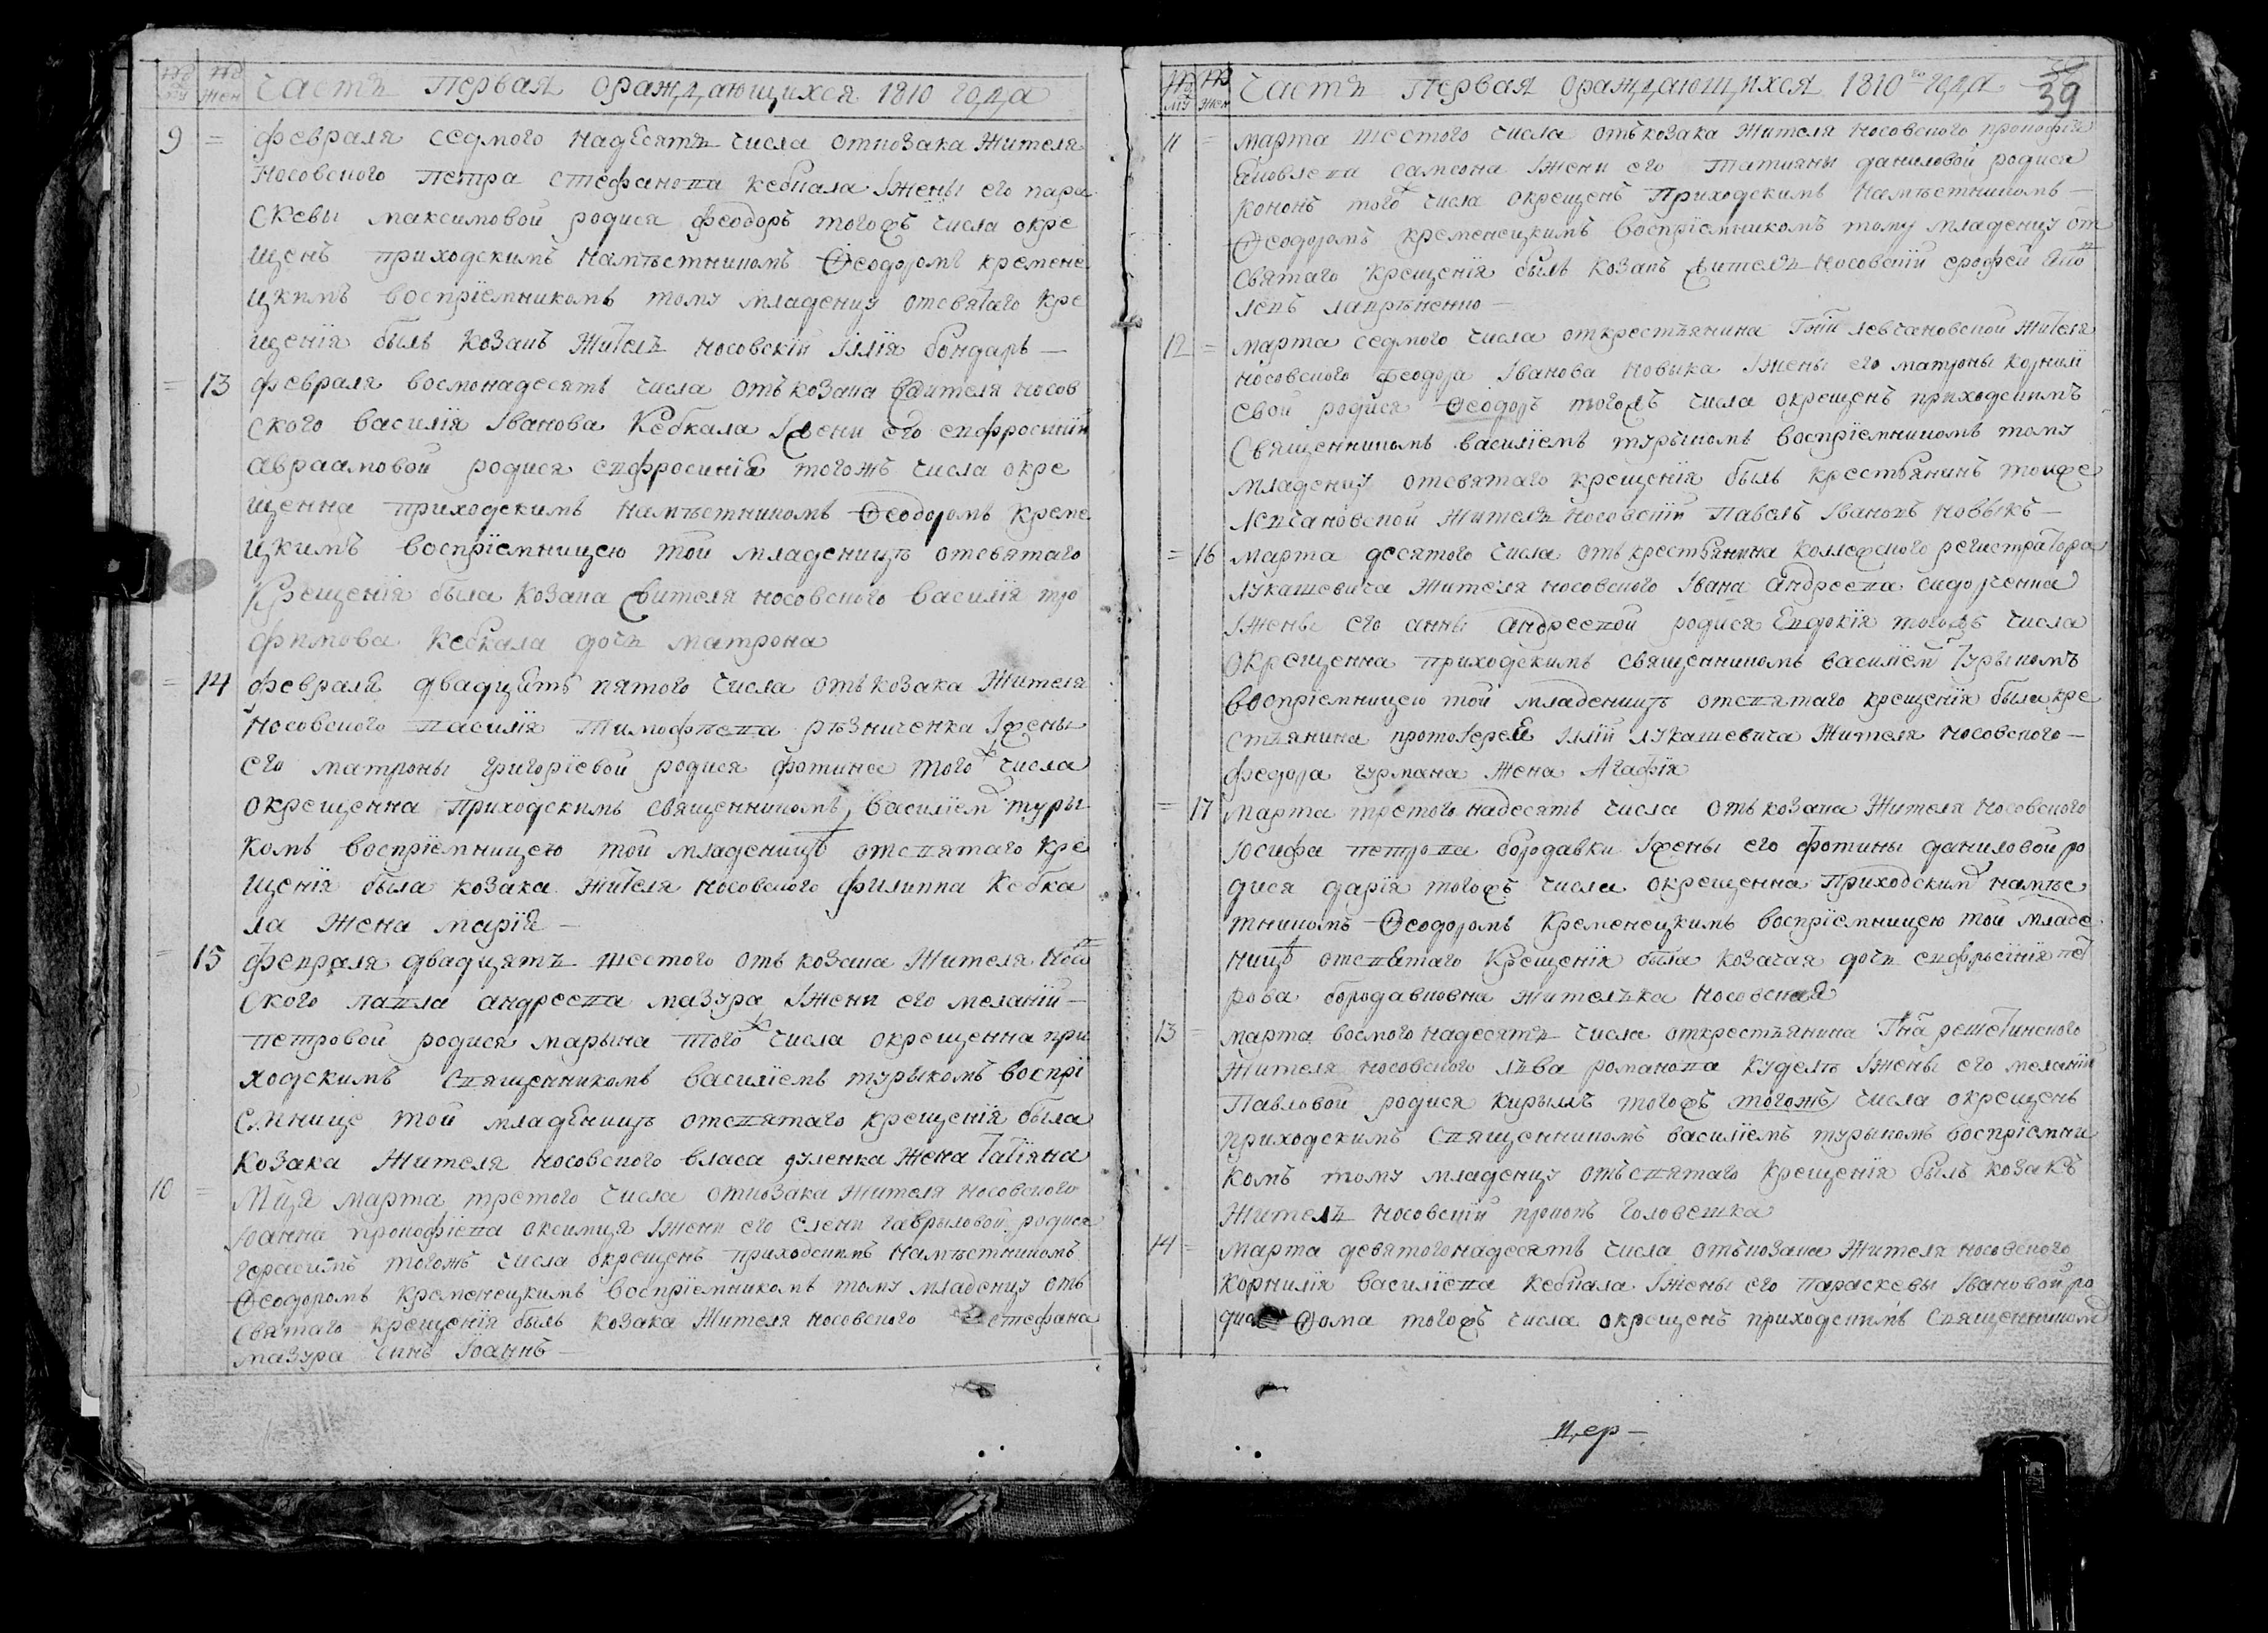 Часть Первая ораждающихся 1810 года
9 = февраля седмого надесять числа откозака Жителя
Носовского Петра Стефанова Кебкала Iжены его пара
скевы максимовой родися феодоръ тогожъ числа окре
щенъ приходскимъ Намѣстникомъ Ѳеодоромъ кремене
цкимъ воспріемникомъ тому младенцу отсвятаго кре
щенія былъ козакъ Житель носовскій Iллія бондарь —
= 13 февраля восмонадесять числа отъ козака жителя носов
ского василія Iванова Кебкала Iжени его евфросиніи
авраамовой родися евфросинія тогожъ числа окре
щенна приходскимъ намѣстникомъ Ѳеодоромъ Креме
цкимъ воспріемницею той младеницѣ отсвятаго
Крещенія была козака жителя носовского василія тро
фимова Кебкала дочь матрона
= 14 февраля двадцять пятого числа отъ козака Жителя
Носовского василія Тимофѣева рѣзниченка Iжены
его матроны григоріевой родися фотина того ж числа
окрещенна приходскимъ священникомъ василіем туры
комъ воспріемницею той младеницѣ отсвятаго кре
щенія была козака Жителя носовского филиппа Кебка
ла жена марія —
= 15 февраля двадцять шестого отъ козака Жителя Носов
ского павла андреева мазура Iжени его меланіи —
петровой родися марына того ж числа окрещенна при
ходскимъ священникомъ василіемъ турыкомъ воспрі
емнице той младеницѣ отсвятаго крещенія была
козака Жителя носовского власа дуленка жена Татіяна
10 = Мця марта третого числа откозака жителя носовского
Iоанна прокофіева Iжени его елени гаврыловой родися
герасимъ тогожъ числа окрещенъ приходскимъ намѣстникомъ
Ѳеодоромъ Кременецкимъ воспріемникомъ тому младенцу отъ
святаго крещенія былъ козака Жителя носовского стефана
мазура синъ Iоаннъ —
Часть Первая ораждающихся 1810 го года
39
11 = марта шестого числа отъ козака Жителя носовского прокофія
Яковлева самсона Iжени его Татияны даниловой родися
Кононъ того ж числа окрещенъ Приходскимъ Намѣстникомъ —
Ѳеодоромъ кременецкимъ воспріемникомъ тому младенцу от
святаго крещенія былъ козакъ житель Носовскій ерофей Яков
левъ лапрѣненко —
12 = марта седмого числа открестьянина Гжи левчановской жителя
носовского Феодора Iванова Новыка Iжены его матроны корнилі
евой родися Ѳеодоръ тогожъ числа окрещенъ приходскимъ
Священникомъ василіемъ турыкомъ воспріемникомъ тому
младенцу отсвятаго крещенія былъ крестьянинъ тоиже
Левчановской житель Носовскій Павелъ Iвановъ Новыкъ —
= 16 марта десятого числа отъ крестьянина коллежского регистратора
Лукашевича жителя носовского Iвана андреева сидорченка
Iжены его анны андреевой родися Евдокія тогожъ числа
Окрещенна приходскимъ священникомъ василіем Турыкомъ
воспріемницею той младеницѣ отсвятаго крещенія была кре
стьянина протоIерея Iллій лукашевича Жителя носовского —
федора гурмана жена Агафія
= 17 марта третого надесять числа отъ козака Жителя Носовского
Iосифа петрова бородавки Iжены его фотины даниловой ро
дися дарія тогожъ числа окрещенна Приходским намѣс
тникомъ Ѳеодоромъ Кременецкимъ воспріемницею той младе
ницѣ отсвятаго Крещенія была козачая дочь евфрьсинія пет
рова бородавковна жителька носовская
13 = марта восмого надесять числа открестьянина Гна решетинского
Жителя носовского лѣва романова куделѣ Iжены его меланіи
Павловой родися кирыллъ тогожъ тогожъ числа окрещенъ
приходскимъ священникомъ василіемъ турыкомъ воспріемни
комъ тому младенцу отъсвятаго крещенія былъ козакъ
житель носовскій прокопъ Головешка
14 = марта девятогонадесять числа отъкозака Жителя носовского
корнилія василіева Кебкала Iжены его Параскевы Iвановой ро
дися Ѳома тогожъ числа окрещенъ приходскимъ священником